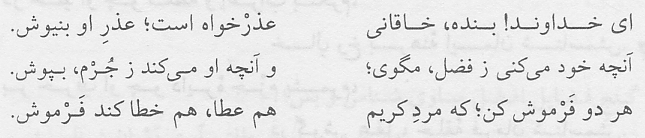 ای خـــداونـــد! بـــنده، خـــاقانی عذرْخواه است؛ عذرِ او بنیوش.
آنچه خود می‌کنی ز فضل، مگوی؛ و آنچه او می‌کند ز جُرْم، بـپوش.
هر دو فَرْموش کن؛ که مردِ کریم هم عطا، هم خطا کند فَـرْموش.